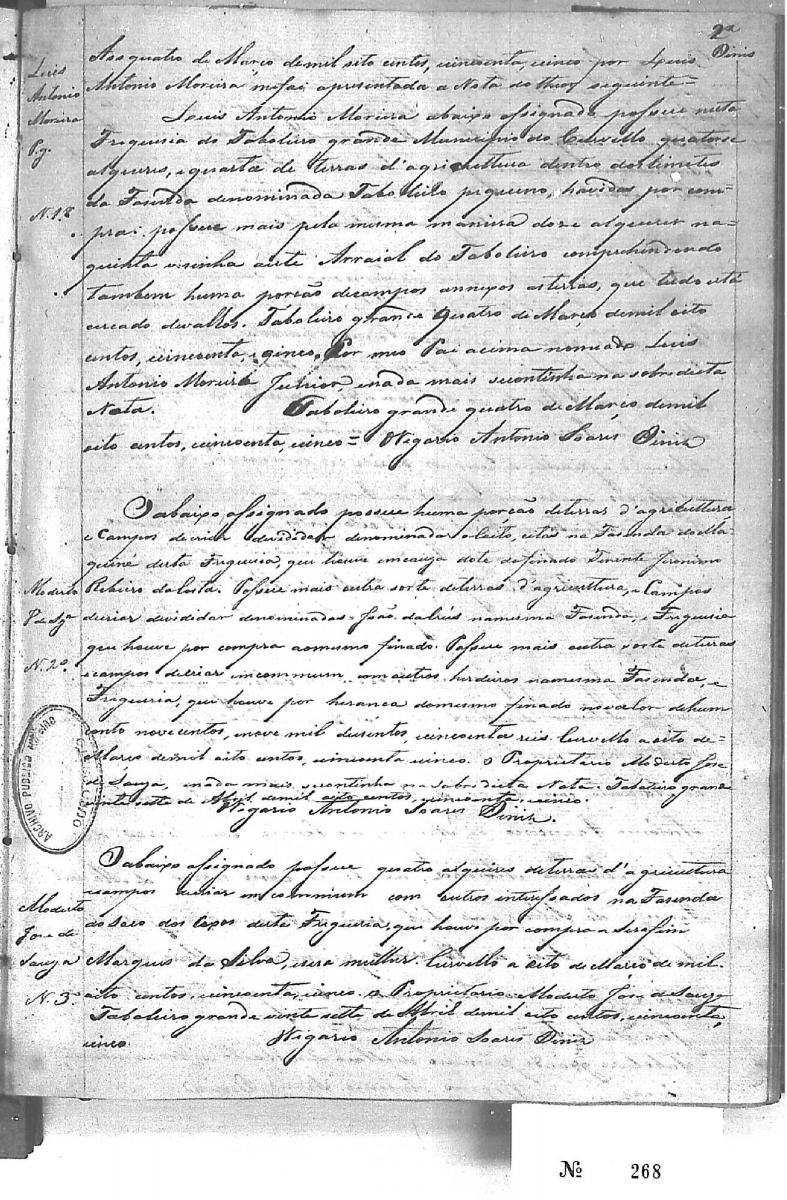 2ª
Dinis
Luis
Antonio
Moreira
Pg.
N. 1.º
Aos quatro de Março de mil oito centos, cincoenta, cinco por Luis
Antonio Moreira me foi apresentada a Nota do theor seguinte =
Louis Antonio Moreira abaixo assignado, possue nesta
Freguesia do Taboleiro grande Municipio do Curvello quatorse
alqueres, e quarta de terras d'agricultura dentro dos limetes
da Fasenda denominada Taboleiro piqueno, havidas por com-
pra: possue mais pela mesma maneira dose alqueres na
quinta visinha a este Arraial do Taboleiro comprehendendo
tambem huma porção de campos annexos as terras, que tudo está
cercado de vallos. Taboleiro grance quatro de Março de mil oito
centos, cincoenta, e cinco. Por meo Pai acima nomeado Luis
Antonio Moreira Junior, enada mais se continha na sobre dicta
Nota. Taboleiro grande quatro de Março de mil
oito centos, cincoenta, cinco = Vigario Antonio Soares Diniz
Modesto
N. 2º
O abaixo, assignado possue huma porção de terras d'agricultura
e Campos de criar devididas denominadas o Leito, citas na Fasenda do Ma
quiné desta Freguesia, que houve em cauza dote do finado Tenente Jeronimo
Ribeiro da Costa. Possue mais outra sorte de terras d'agricultura, e Campos
de criar divididas denominadas João da Cruz na mesma Fasenda, e Freguesia
que houve por compra ao mesmo finado. Possue mais outra sorte de terras
e campos de criar in commum com outros herdeiros na mesma Fasenda, e
Freguesia, que houve por herança do mesmo finado no valor de hum
conto nove centos, e nove mil dusentos, cincoenta reis. Curvello a oito de
Março de mil oito centos, cincoenta cinco. O Proprietario Modesto Jose
de Souza, enada mais se continha na sobre dicta Nota. Taboleiro grande
vinte sette de Abril de mil oito centos, cincoenta, cinco.
Vigario Antonio Soares Diniz
ARCHIVO PUBLICO MINEIRO
Modesto
Jose de
Souza
N. 3º
O abaixo assignado possue quatro alqueires de terras d'agricultura
e campos de criar in commum com outros interessados na Fasenda
do Saco dos Cexos desta Freguesia, que houve por compra a Serafim
Marques da Silva, e sua mulher. Curvello a oito de Março de mil
oito centos, cincoenta, cinco. O Proprietario Modesto Jose de Souza
Taboleiro grande vinte sette de Abril de mil oito centos, cincoenta,
cinco. Vigario Antonio Soares Diniz
Nº 268